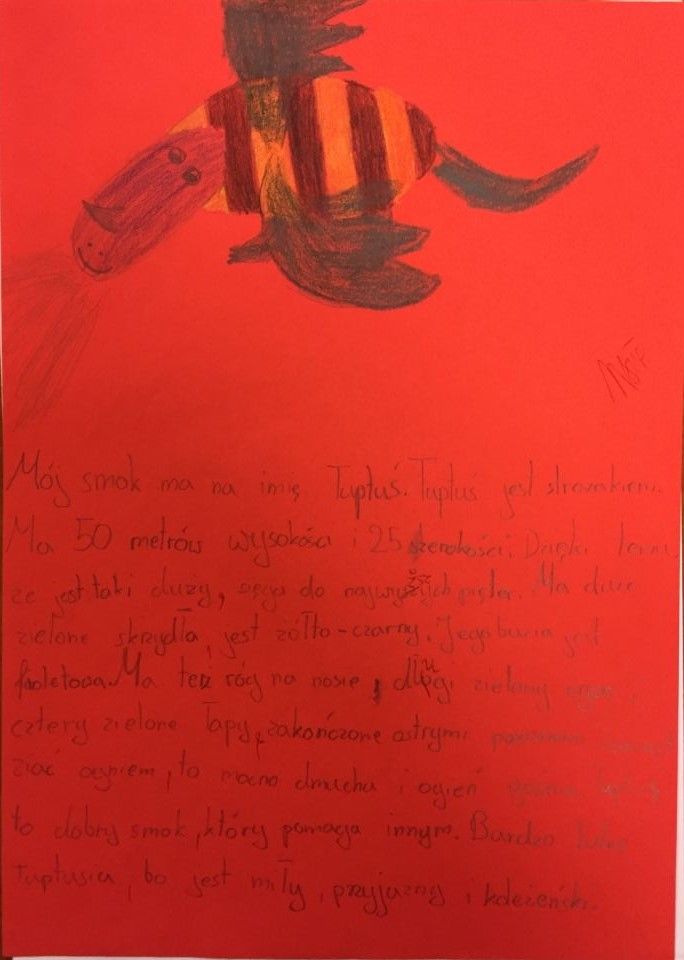 Mój smok ma na imię Tuptuś. Tuptuś jest strażakiem.
Ma 50 metrów wysokości i 25 szerokości. Dzięki temu,
że jest taki duży, sięga do najwyższych pięter. Ma duże
zielone skrzydła, jest żółto-czarny. Jego buzia jest
fioletowa. Ma też róg na nosie, długi zielony ogon,
cztery zielone łapy, zakończone ostrymi
ziać ogniem, to mocno dmucha i ogień
to dobry smok, który pomaga innym. Bardzo lubię
Tuptusia, bo jest miły, przyjazny i koleżeński.